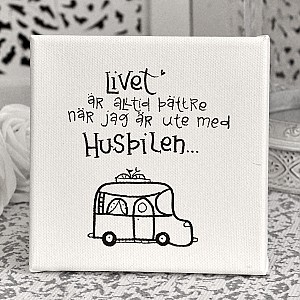 Livet
är alltid bättre
när jag är ute med
Husbilen...